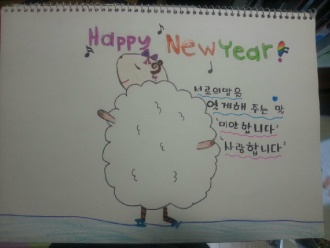 Happy New Year!
서로의 맘을
연계해 주는 말
'미안합니다'
'사랑합니다'